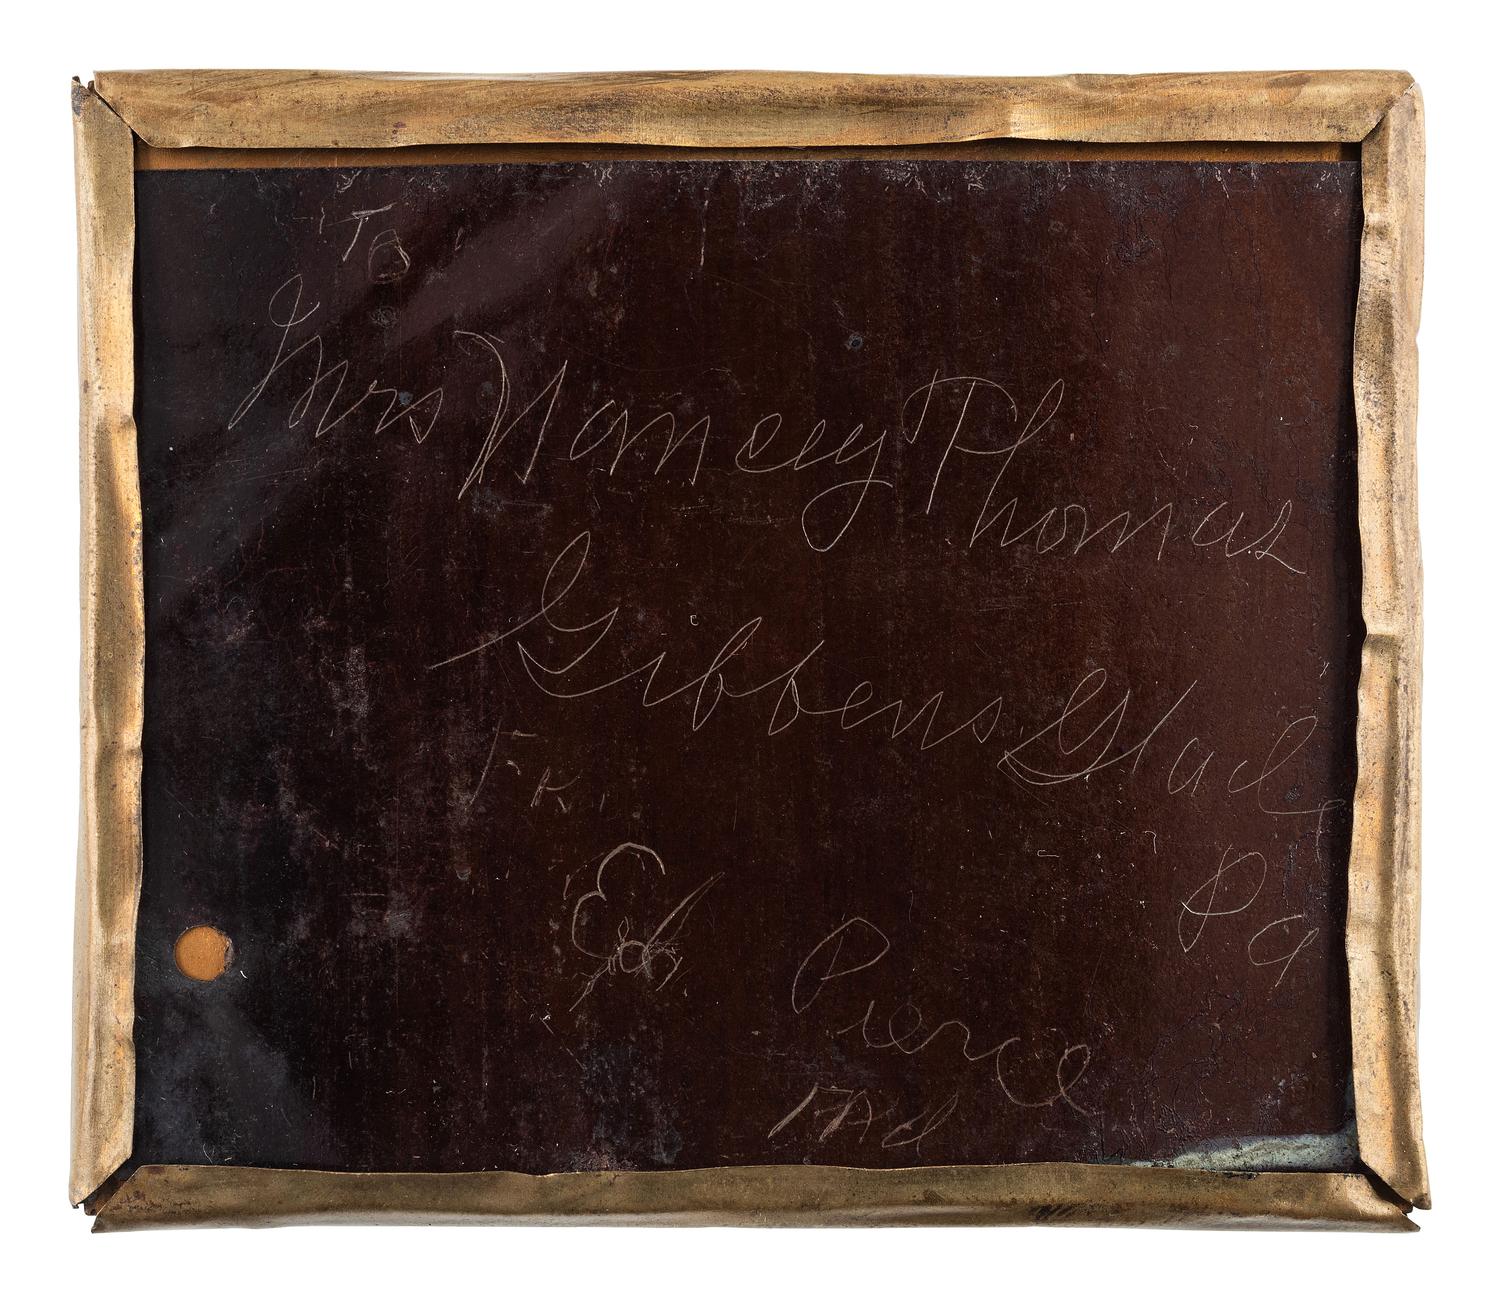 To
Mrs Nancy Thomas
Gibbens Glade
Pa
Fr.
Eb Pierce